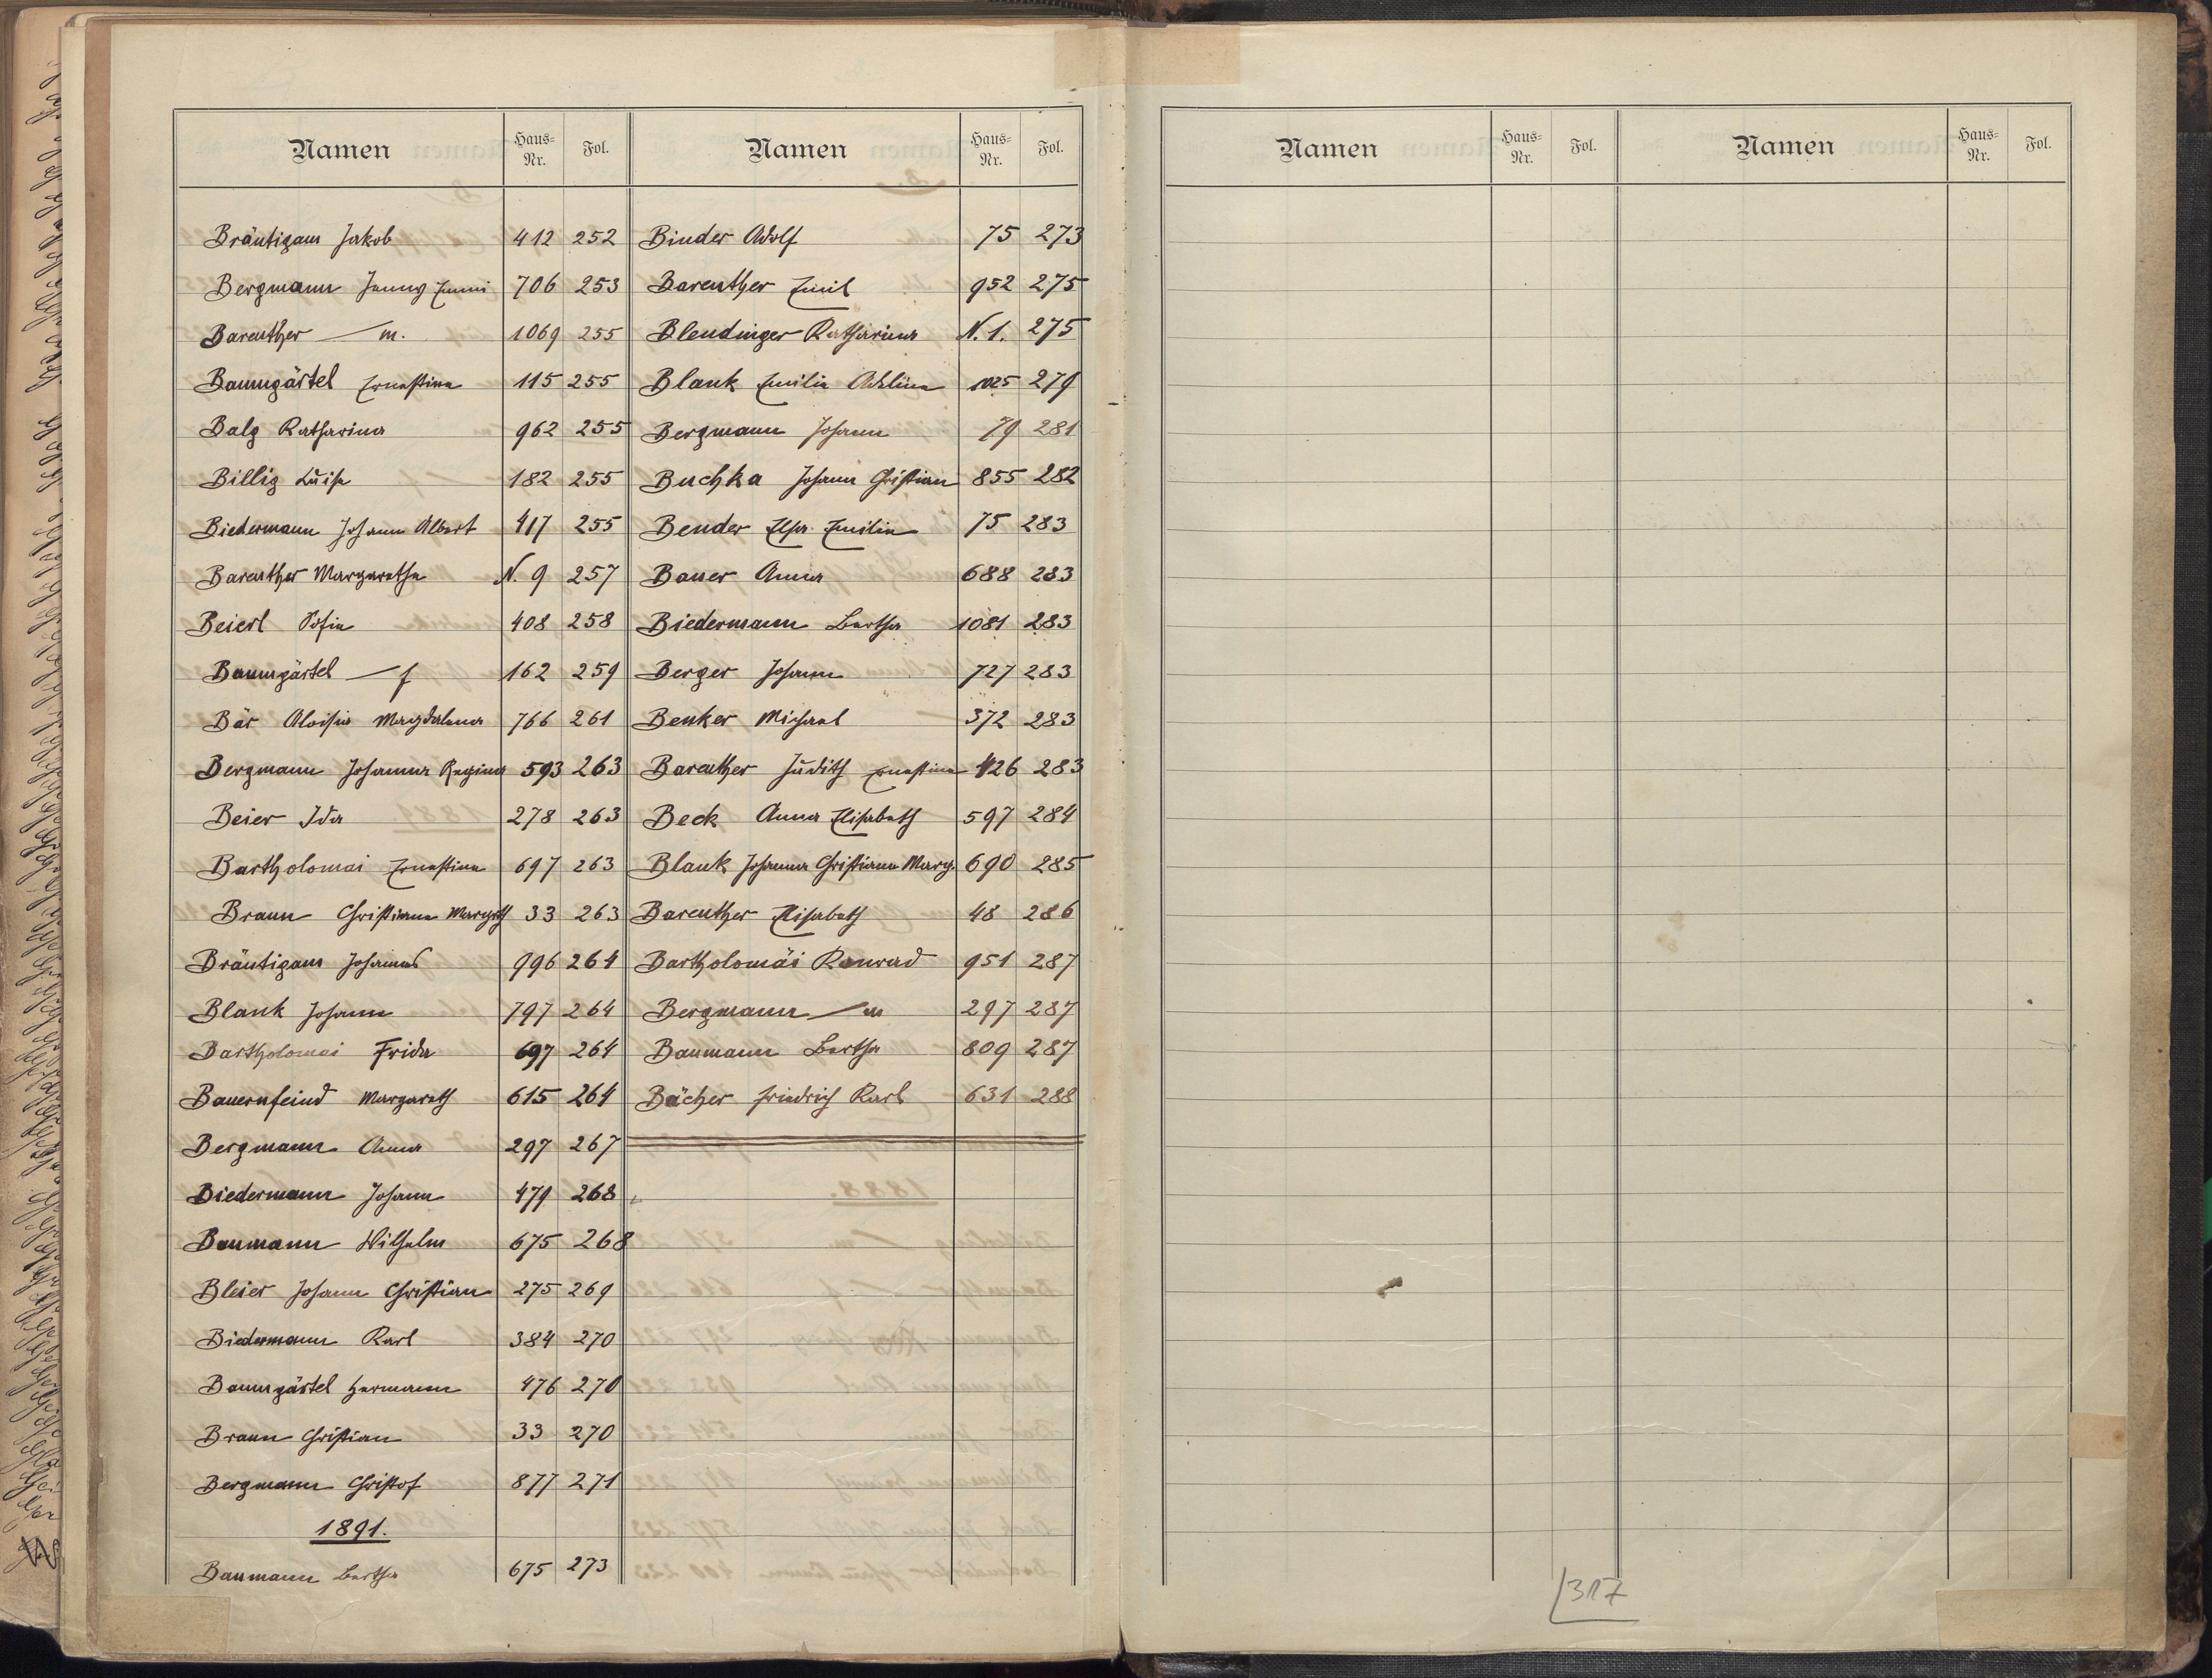 Namen Haus-Nr. Fol.
Bräutigam Jakob 412 252
Bergmann Jenny Emmi 706 253
Bareuther — m. 1069 255
Baumgärtel Ernestine 115 255
Balg Katharina 962 255
Billig Luise 182 255
Biedermann Johann Albert 417 255
Bareuther Margaretha N. 9 257
Beierl Sofie 408 258
Baumgärtel — f 162 259
Bär Aloisia Magdalena 766 261
Bergmann Johanna Regina 593 263
Beier Ida 278 263
Bartholomai Ernestine 697 263
Braun Christiane Margth 33 263
Bräutigam Johannes 996 264
Blank Johann 797 264
Bartholomai Frida 697 264
Bauernfeind Margareth 615 264
Bergmann Anna 297 267
Biedermann Johann 479 268
Baumann Wilhelm 675 268
Bleier Johann Christian 275 269
Biedermann Karl 384 270
Baumgärtel Hermann 476 270
Braun Christian 33 270
Bergmann Christof 877 271
1891.
Baumann Bertha 675 273
Namen Haus-Nr. Fol.
Binder Adolf 75 273
Bareuther Emil 952 275
Blendinger Katharina N. 1. 275
Blank Emilie Adeline 1025 279
Bergmann Johann 79 281
Buchka Johann Christian 855 282
Bender Elsa Emilie 75 283
Bauer Anna 688 283
Biedermann Bertha 1081 283
Berger Johann 727 283
Benker Michael 372 283
Bareuther Judith Ernestine 426 283
Beck Anna Elisabeth 597 284
Blank Johanna Christiana Marg. 690 285
Bareuther Elisabeth 48 286
Bartholomäi Konrad 951 287
Bergmann — m 297 287
Baumann Bertha 809 287
Bächer Friedrich Karl 631 288
Namen Haus-Nr. Fol.
Namen Haus-Nr. Fol.
317